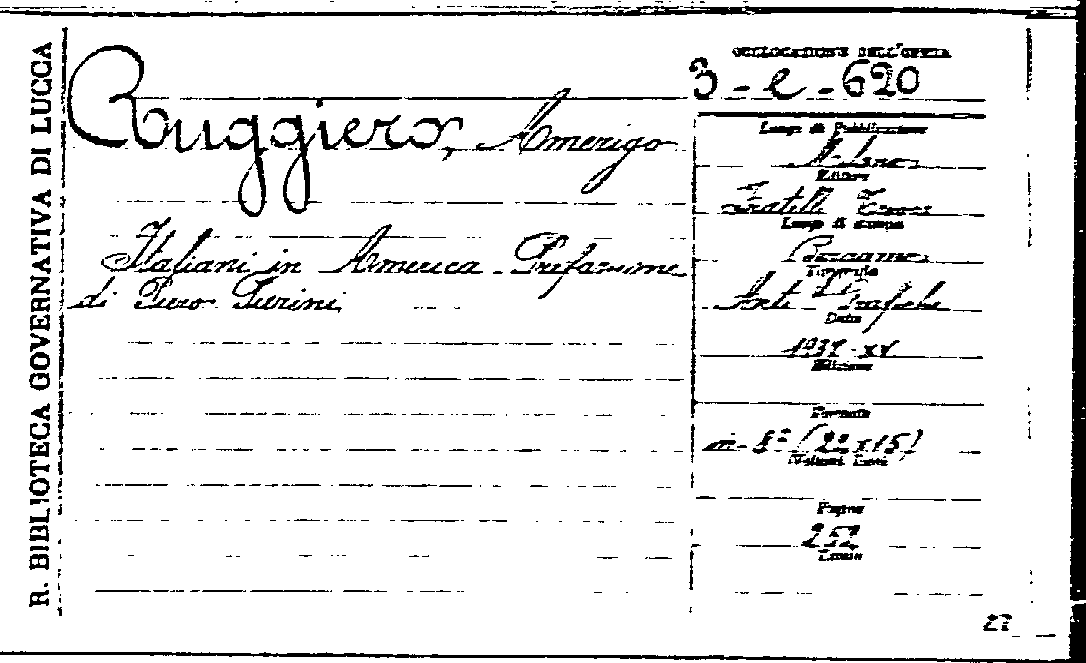 R. BIBLIOTECA GOVERNATIVA DI LUCCA
COLLOCAZIONE DELL'OPERA
3 - e - 620
Ruggiero, Amerigo
Italiani in America - Prefazione
di Piero Parini
Luogo di Pubblicazione
Milano
Editore
Fratelli Treves
Luogo di stampa
Bergamo
Tipografia
Arti Grafiche
Data
1937 - XV
Edizione
Formato
in - 8° (22 x 15)
Volumi
Pagine
252